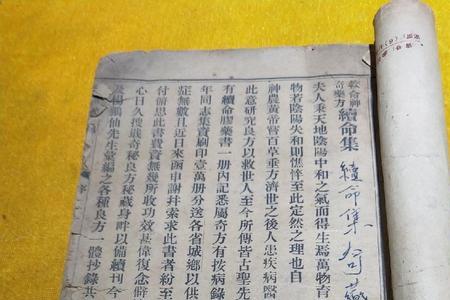 救命神
奇藥方
續命集
夫人秉天地陰陽中和之氣而得生爲萬物育
物若陰陽失和則憔悴至此定然之理也自
神農黃帝嘗百草垂方濟世之後人患疾病醫
此意研究良方以救世人至今所傳皆古聖先
有續命膠藥書一册內記悉屬奇方有按病錄
年同志集資刷印壹萬册分送各省城鄉以供
症無數且近日來函申謝并索求此書者紛至
付備思此書費資無幾所收功效甚偉復念鮮
心日久搜選奇秘良方秘藏身畔以備續刊今
及楊鶴仙先生彙編之各種良方一體抄錄共
續命集